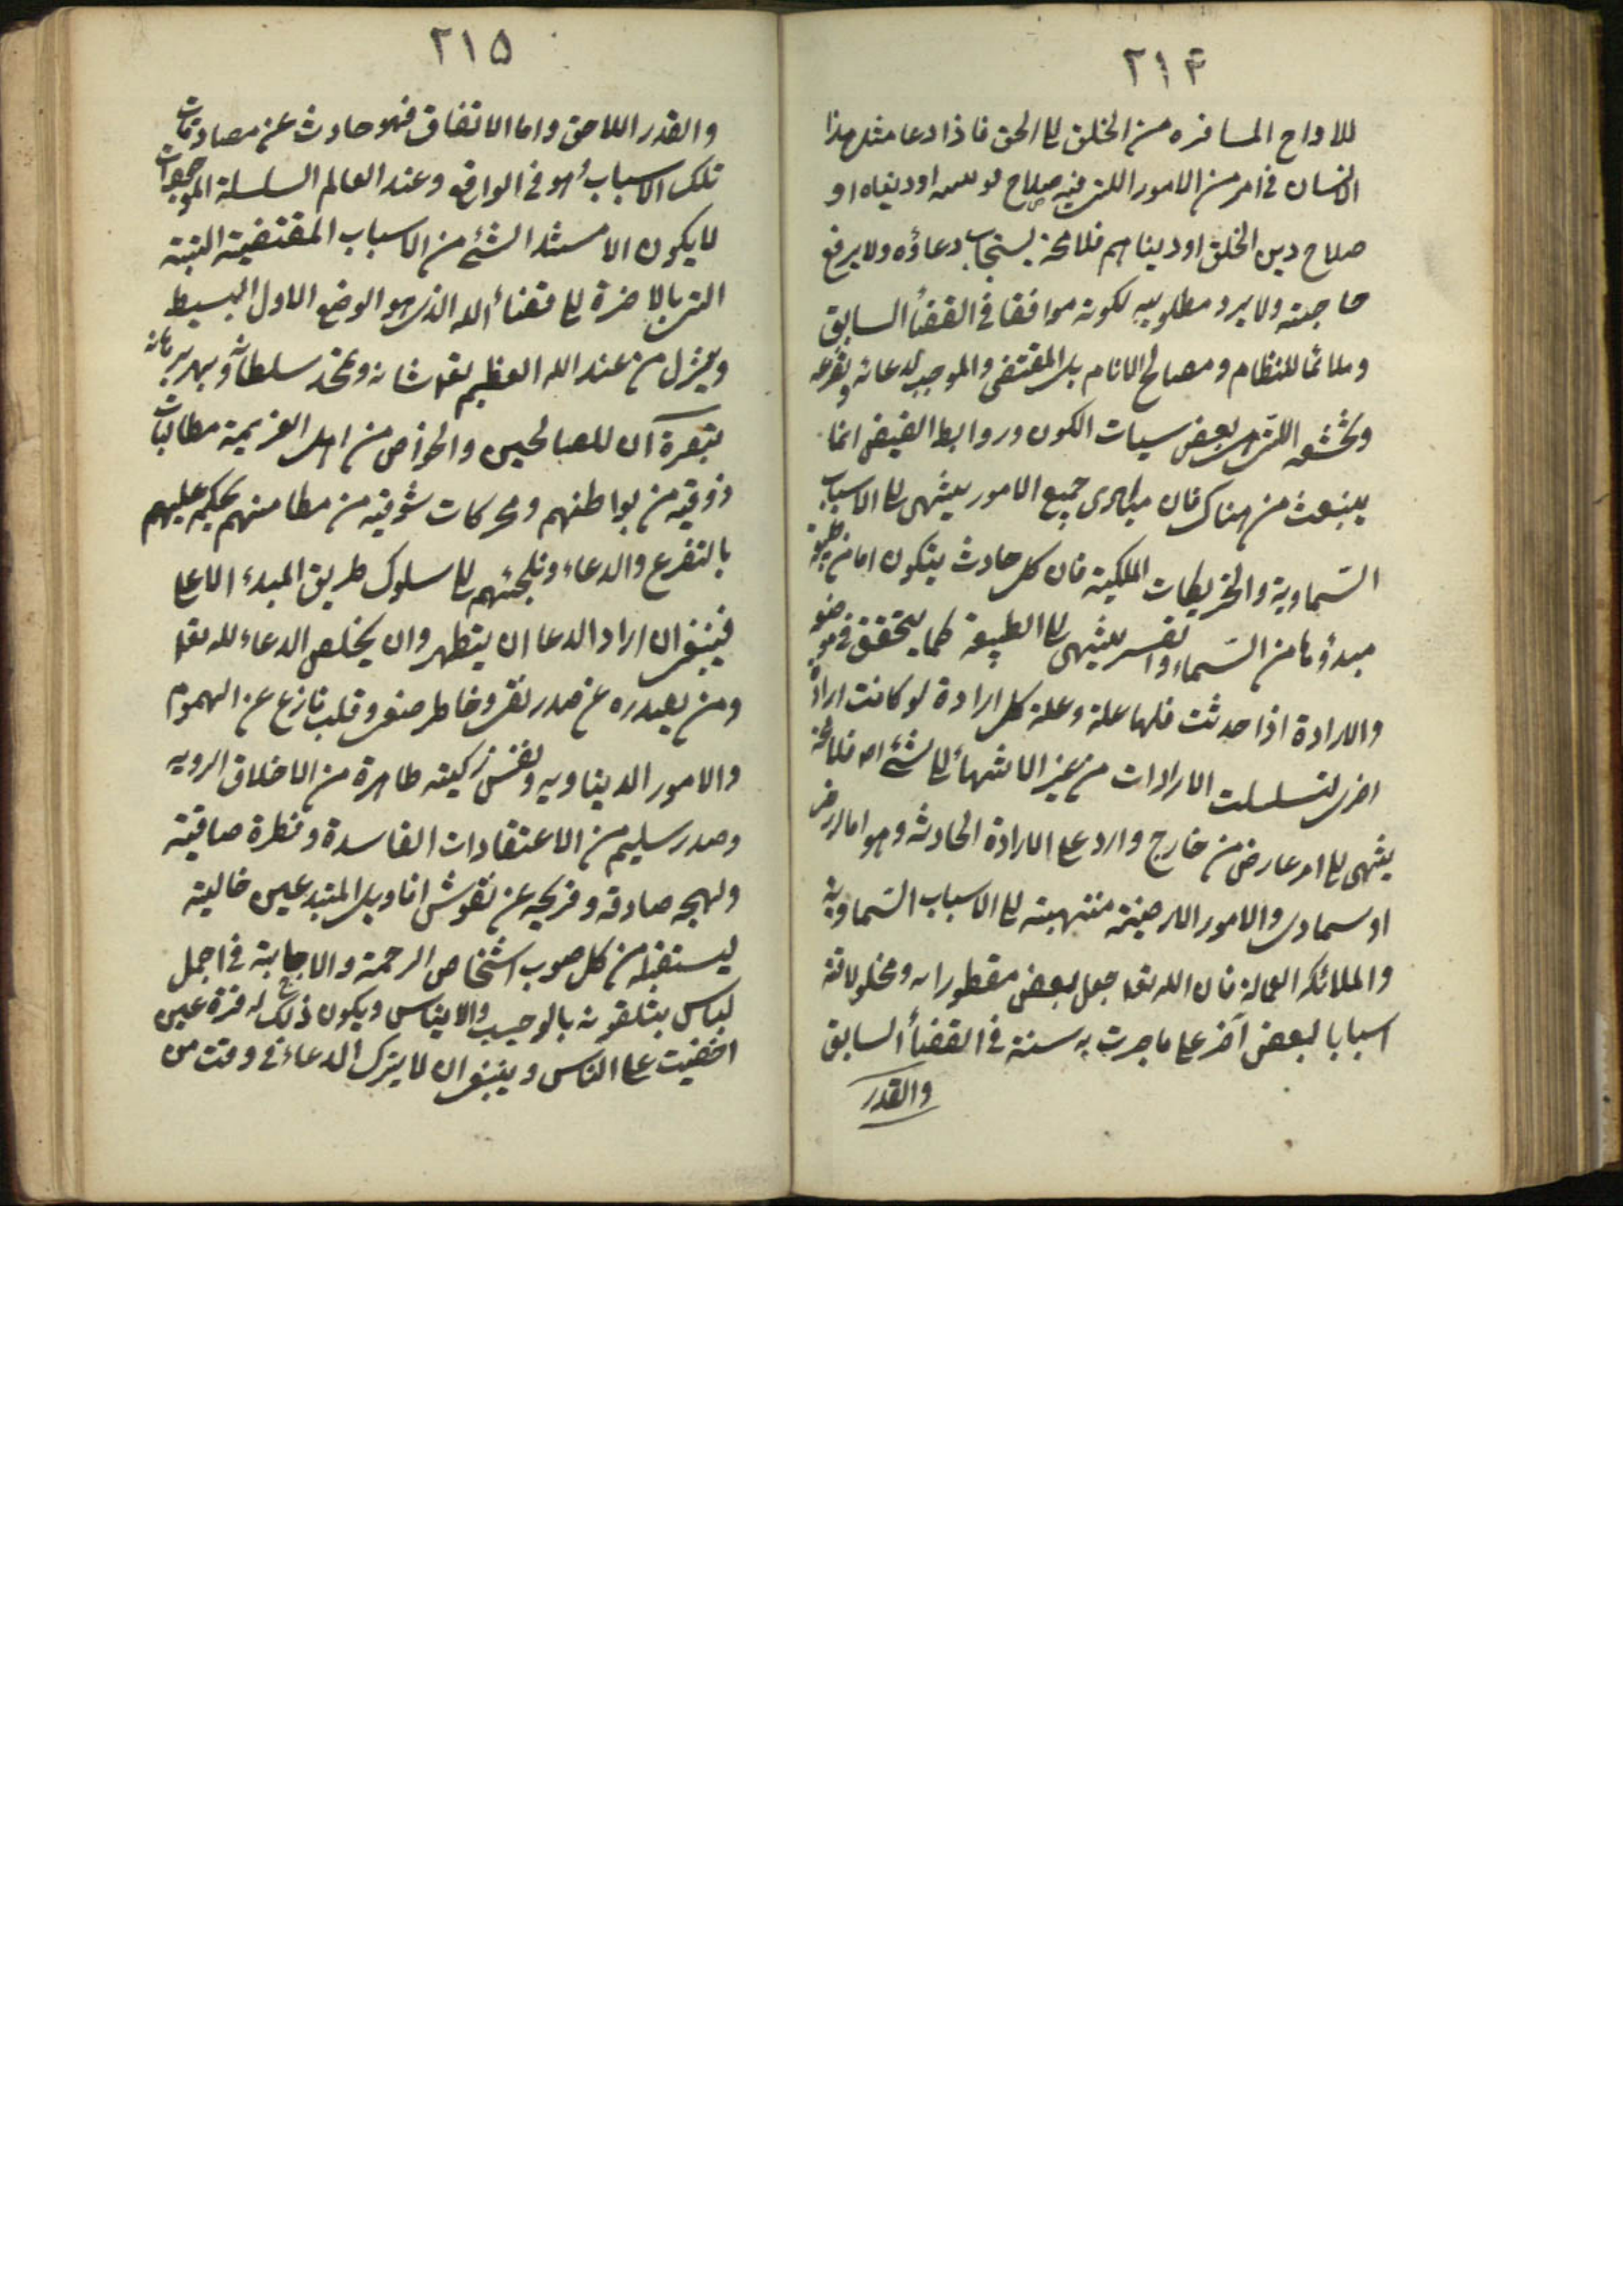 ٢١٤
للارواح المسافره من الخلق الى الحق فاذا دعا مثل هذا
الانسان فى امر من الامور اللتى فيه صلاح او دنياه او
صلاح دين الخلق او دنياهم فلا محة يستجاب دعاؤه ولا يرفع
حاجته ولا يرد مطلوبه لكونه موافقا فى القضأ السابق
وملائما للنظام ومصالح الانام بل المقتضى والموجب لدعائه وتضرعه
وتخشعه اللتى هى بعض سبات الكون وروابط الفيض انما
ينبعث من هناك فان مبادى جميع الامور ينتهى الى الاسباب
السّماوية والملكية فان كل حادث يتكون اما من طبيعة
مبدؤها من السّماء والقسر ينتهى الى الطبيعة كما يتحقق فى موضعه
والارادة اذا حدثت فلها علة وعلة كل ارادة لو كانت ارادة
اخرى لتسلسلت الارادات من غير الانتهأ الى شئ اه فلا محة
ينتهى الى امر عارض من خارج وارد على الارادة الحادثه وهو اما ارضى
او سماوى والامور الارضية منتهية الى الاسباب السّماوية
والملائكه العماله فان الله تعا جعل بعض مفطوراته ومخلوقاته
اسبابا لبعض آخر على ما جرت به سنته فى القضأ السابق
والقدر
٢١٥
والقدر اللاحق واما الاتفاق فهو حادث عن مصادمات
تلك الاسباب هو فى الواقع وعند العالم السلسلة الموجبات
لا يكون الا مستند الشئ من الاسباب المقتضية البتة
التى بالاخرة الى قضأ الله الذى هو الوضع الاول البسيط
وينزل من عند الله العظيم تعا شانه سلطانه وبهر برهانه
تبصرة آن للصالحين والخواص من اهل العزيمة مطالبات
ذوقية من بواطنهم ومحركات شوقيه من مطامنهم يحكم عليهم
بالتضرع والدعاء ويلجئهم الى سلوك طريق المبدء الاعلى
فينبغى ان اراد الدعا ان يتطهر وان يخلص الدعاء لله تعا
ومن يصدره عن صدر نقى وخاطر صفى وقلب نازع عن الهموم
والامور الديناويه ونفس زكيته طاهرة من الاخلاق الرديه
وصدر سليم من الاعتقادات الفاسدة وفطرة صافية
ولهجه صادقه وقريحه عن نقوش اقاويل المبتدعين خالية
ليستقبله من كل صوب اشخاص الرحمة والاجابة فى اجمل
لباس يتلقونه بالوجيب والايناس ويكون ذلك له قرة عين
اخفيت على الناس وينبغى ان لا يترك الدعاء فى وقت من